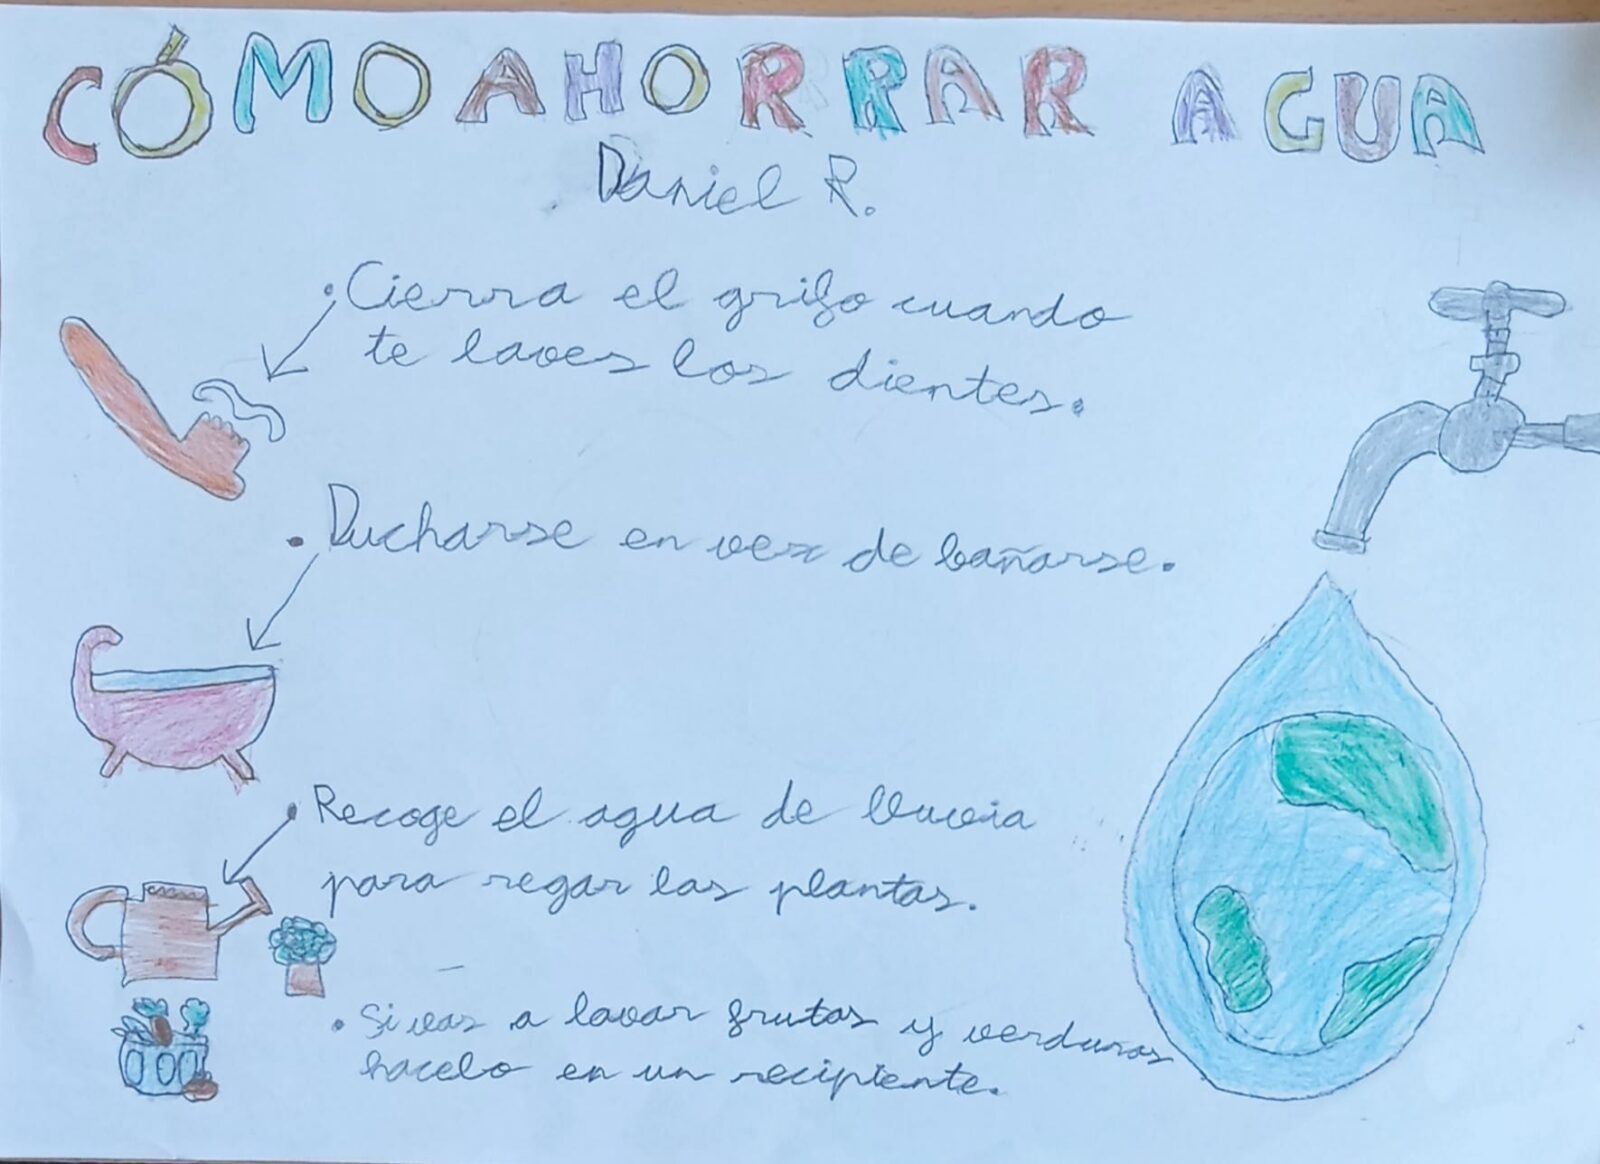 CÓMO AHORRAR AGUA
Daniel R.
• Cierra el grifo cuando
te laves los dientes.
• Ducharse en vez de bañarse.
• Recoge el agua de lluvia
para regar las plantas.
• Si vas a lavar frutas y verduras
hacelo en un recipiente.